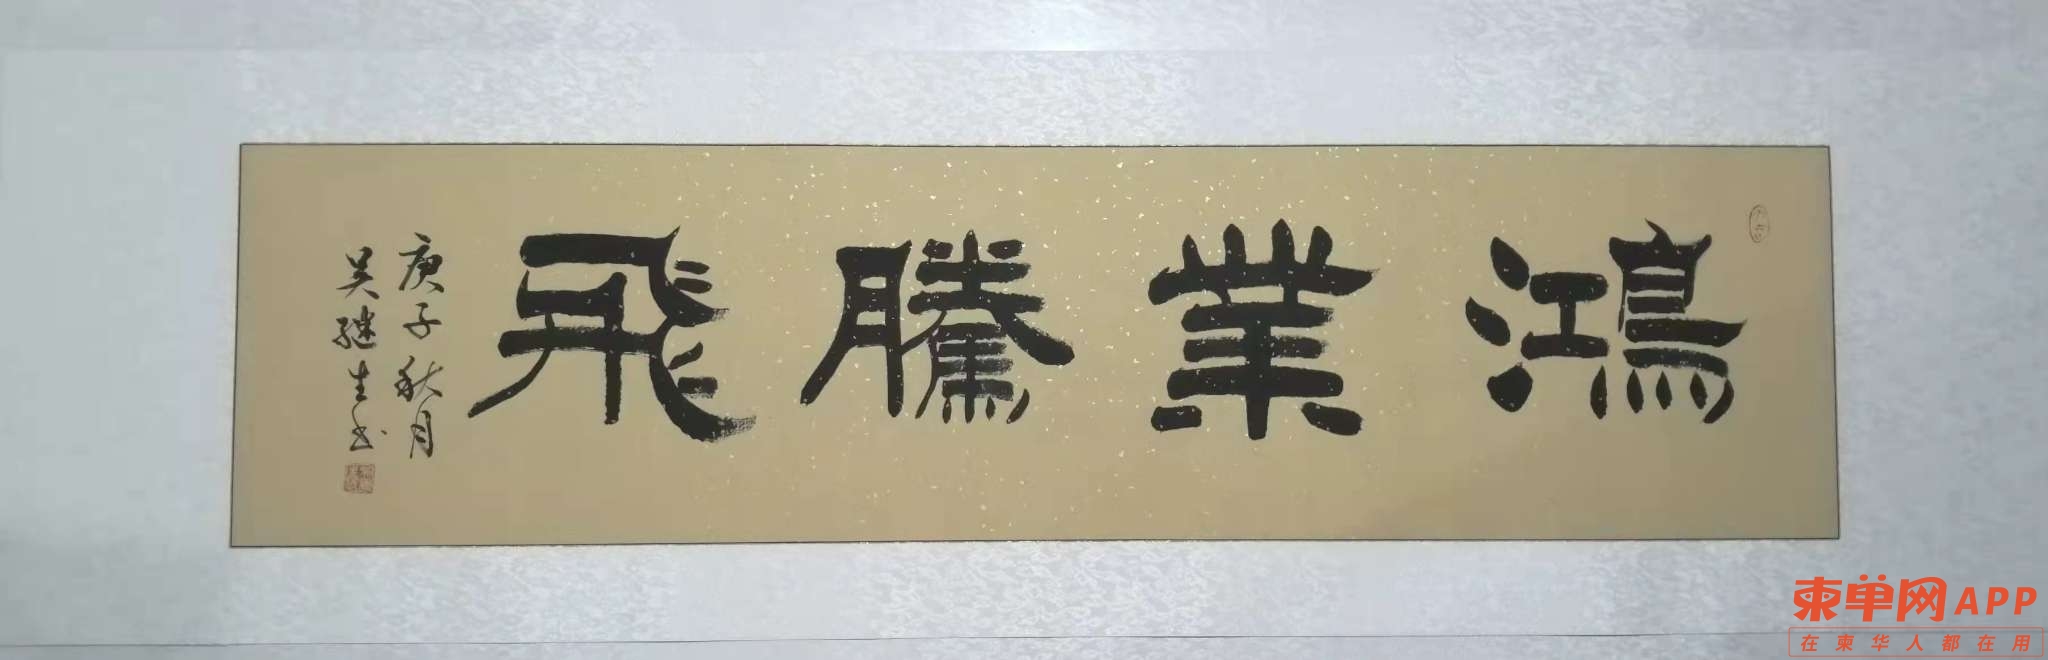 鴻業騰飛
庚子秋月
吴继生书
柬单网APP
在柬华人都在用